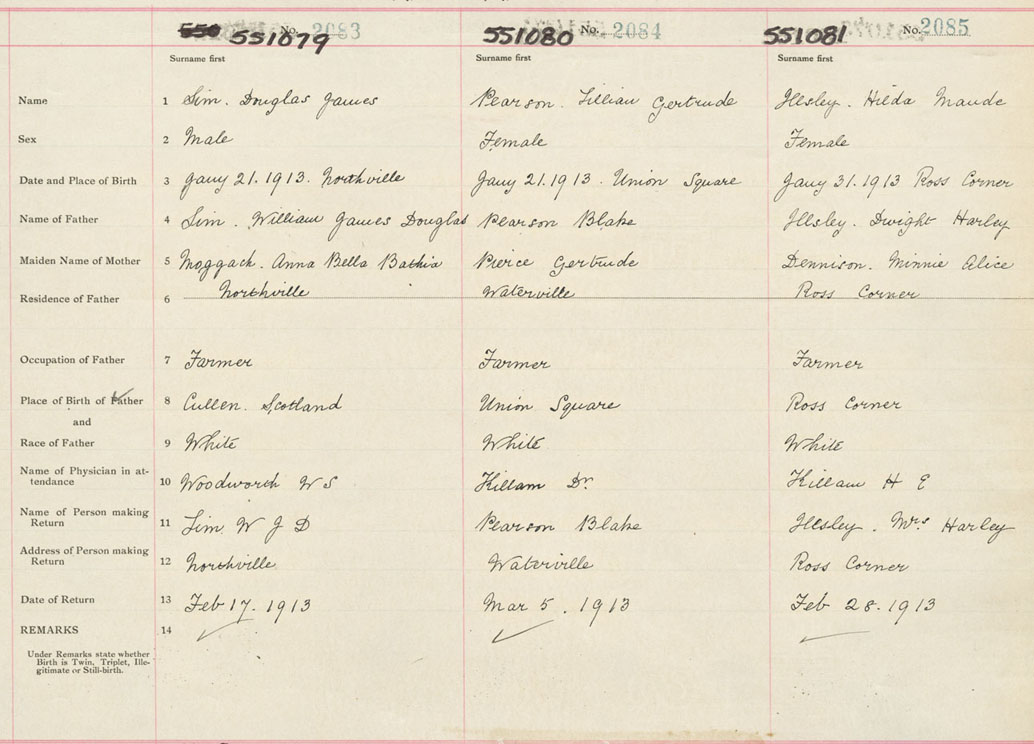 550 551079 No. 2083 551080 No. 2084 551081 No. 2085
Surname first Surname first Surname first
Name 1 Sim. Douglas James Pearson. Lillian Gertrude Illsley. Hilda Maude
Sex 2 Male Female Female
Date and Place of Birth 3 Jany 21. 1913. Northville Jany 21. 1913. Union Square Jany 31. 1913 Ross Corner
Name of Father 4 Sim. William James Douglas Pearson Blake Illsley. Dwight Harley
Maiden Name of Mother 5 Moggach. Anna Bella Bathia Pierce Gertrude Dennison. Minnie Alice
Residence of Father 6 Northville Waterville Ross Corner
Occupation of Father 7 Farmer Farmer Farmer
Place of Birth of Father 8 Cullen. Scotland Union Square Ross Corner
and
Race of Father 9 White White White
Name of Physician in at-
tendance 10 Woodworth W S Killam Dr. Killam H E
Name of Person making
Return 11 Sim W J D Pearson Blake Illsley. Mrs Harley
Address of Person making
Return 12 Northville Waterville Ross Corner
Date of Return 13 Feb 17. 1913 Mar 5. 1913 Feb 28. 1913
REMARKS 14
Under Remarks state whether
Birth is Twin, Triplet, Ille-
gitimate or Still-birth.